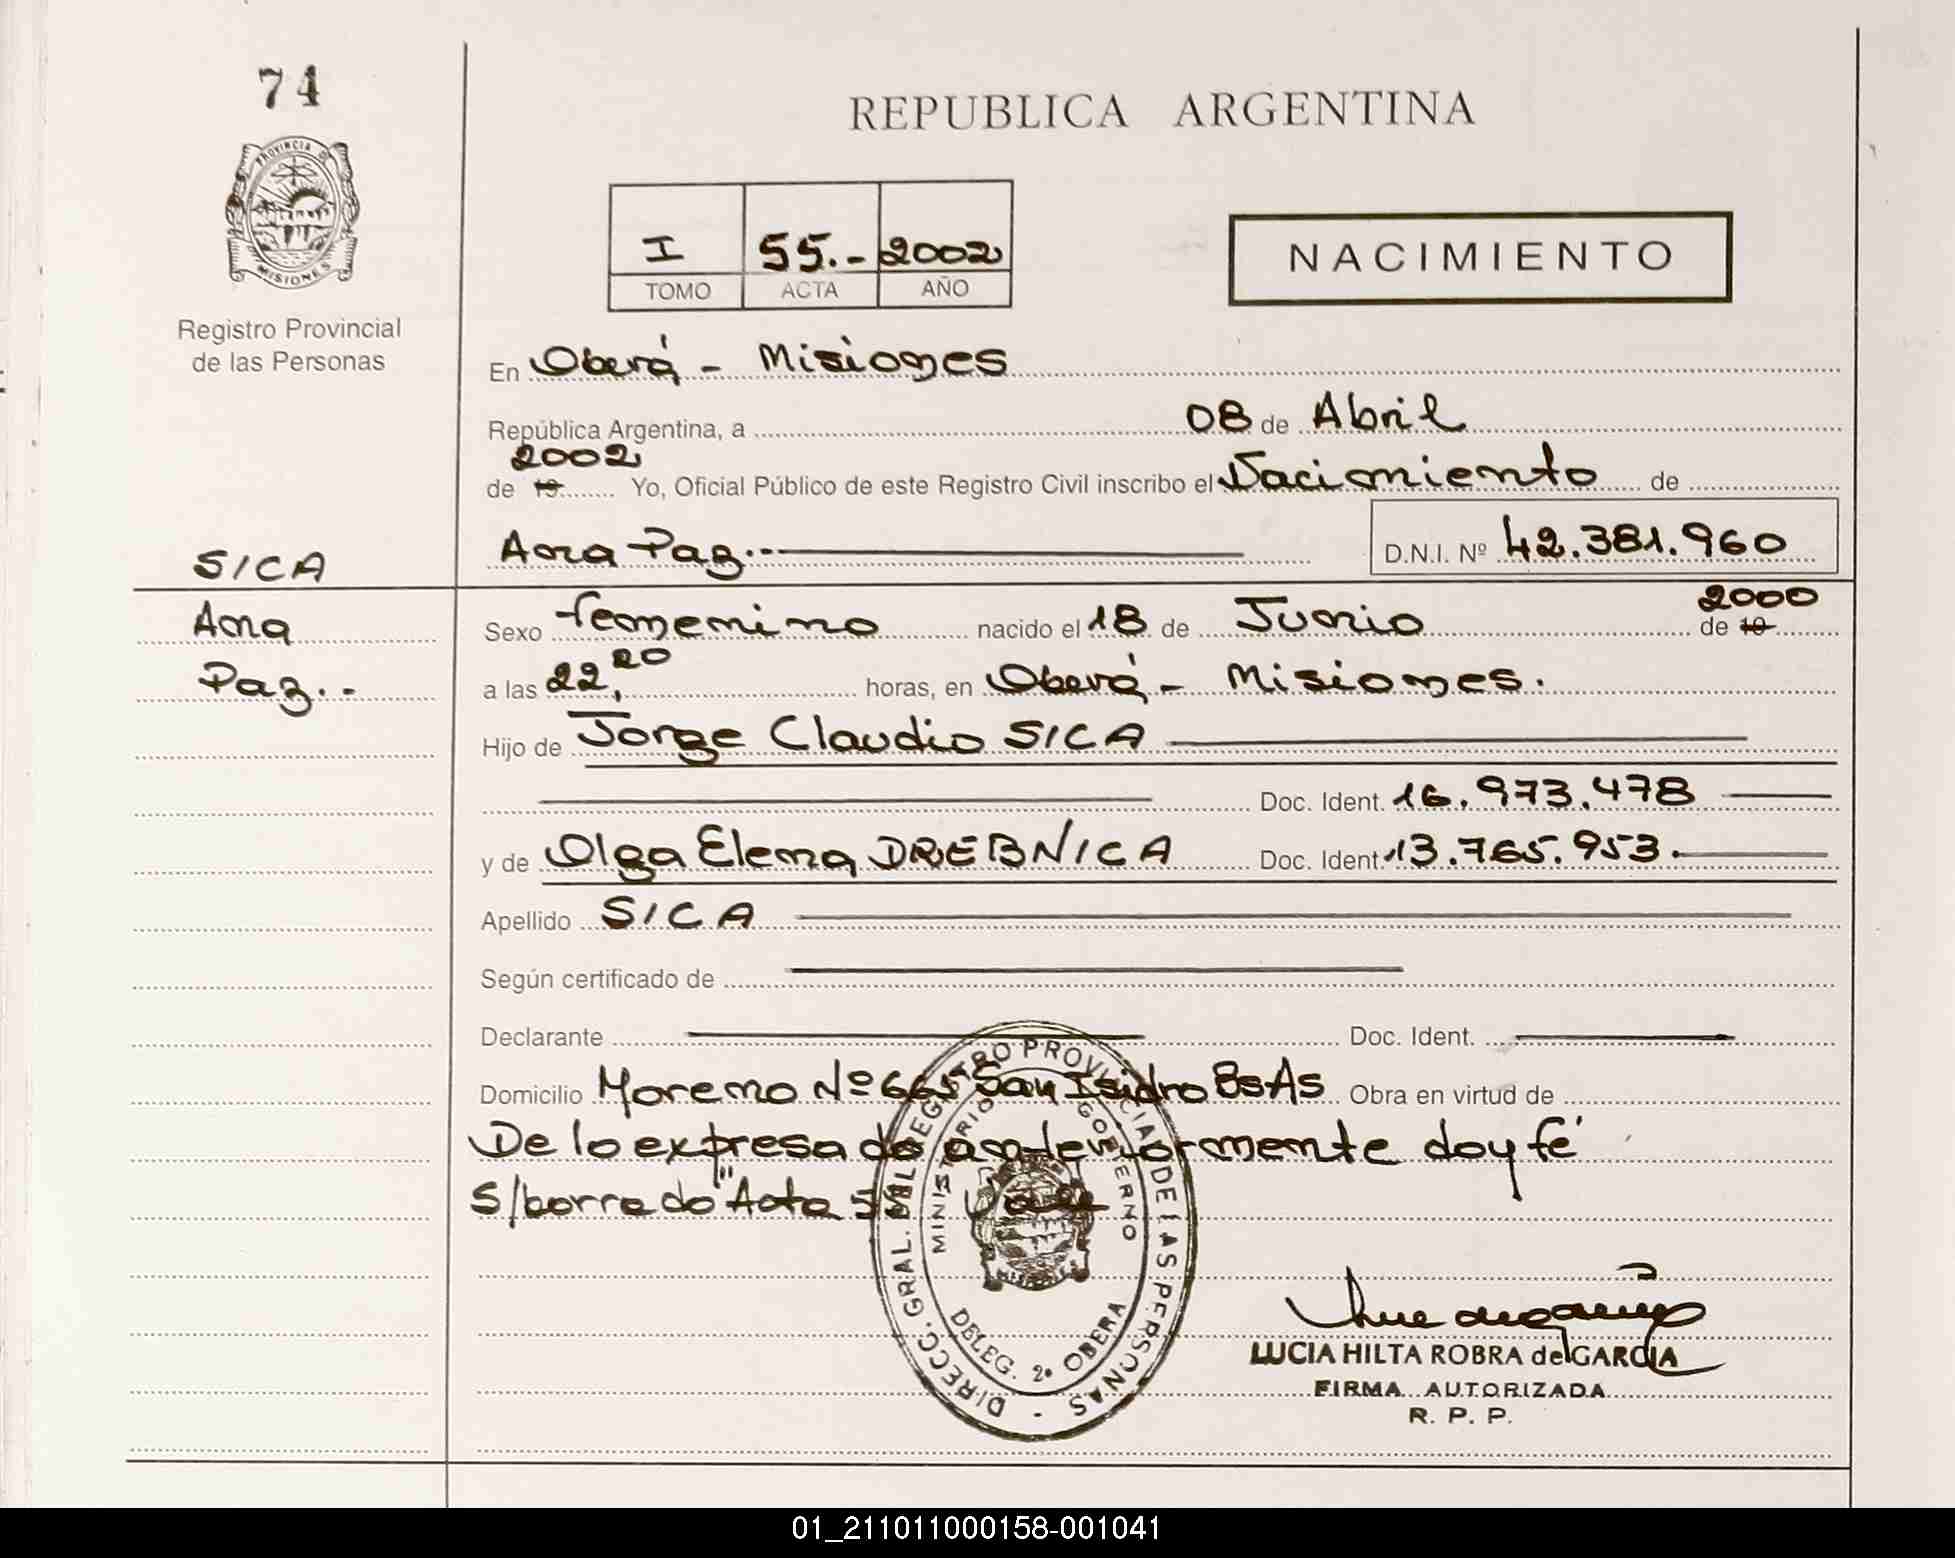 74
PROVINCIA DE
MISIONES
Registro Provincial
de las Personas
REPUBLICA ARGENTINA
I 55.- 2002
TOMO ACTA AÑO
NACIMIENTO
En Oberá - Misiones
República Argentina, a 08 de Abril
2002
de 19 Yo, Oficial Público de este Registro Civil inscribo el Nacimiento de
Ana Paz.-- D.N.I. Nº 42.381.960
SICA
Ana
Paz.--
2000
Sexo femenino nacido el 18 de Junio de 19
a las 22,20 horas, en Oberá - Misiones.
Hijo de Jorge Claudio SICA
Doc. Ident. 16.973.478
y de Olga Elena DREBNICA Doc. Ident. 13.765.953.
Apellido SICA
Según certificado de
Declarante Doc. Ident.
Domicilio Moreno Nº 665 San Isidro BsAs Obra en virtud de
De lo expresado anteriormente doy fé
S/borrado "Acta 55" Vale
DIRECC. GRAL. DEL REGISTRO PROVINCIAL DE LAS PERSONAS -
MINISTERIO GOBIERNO
MISIONES
DELEG. 2º OBERA
LUCIA HILTA ROBRA de GARCIA
FIRMA AUTORIZADA
R. P. P.
01_211011000158-001041